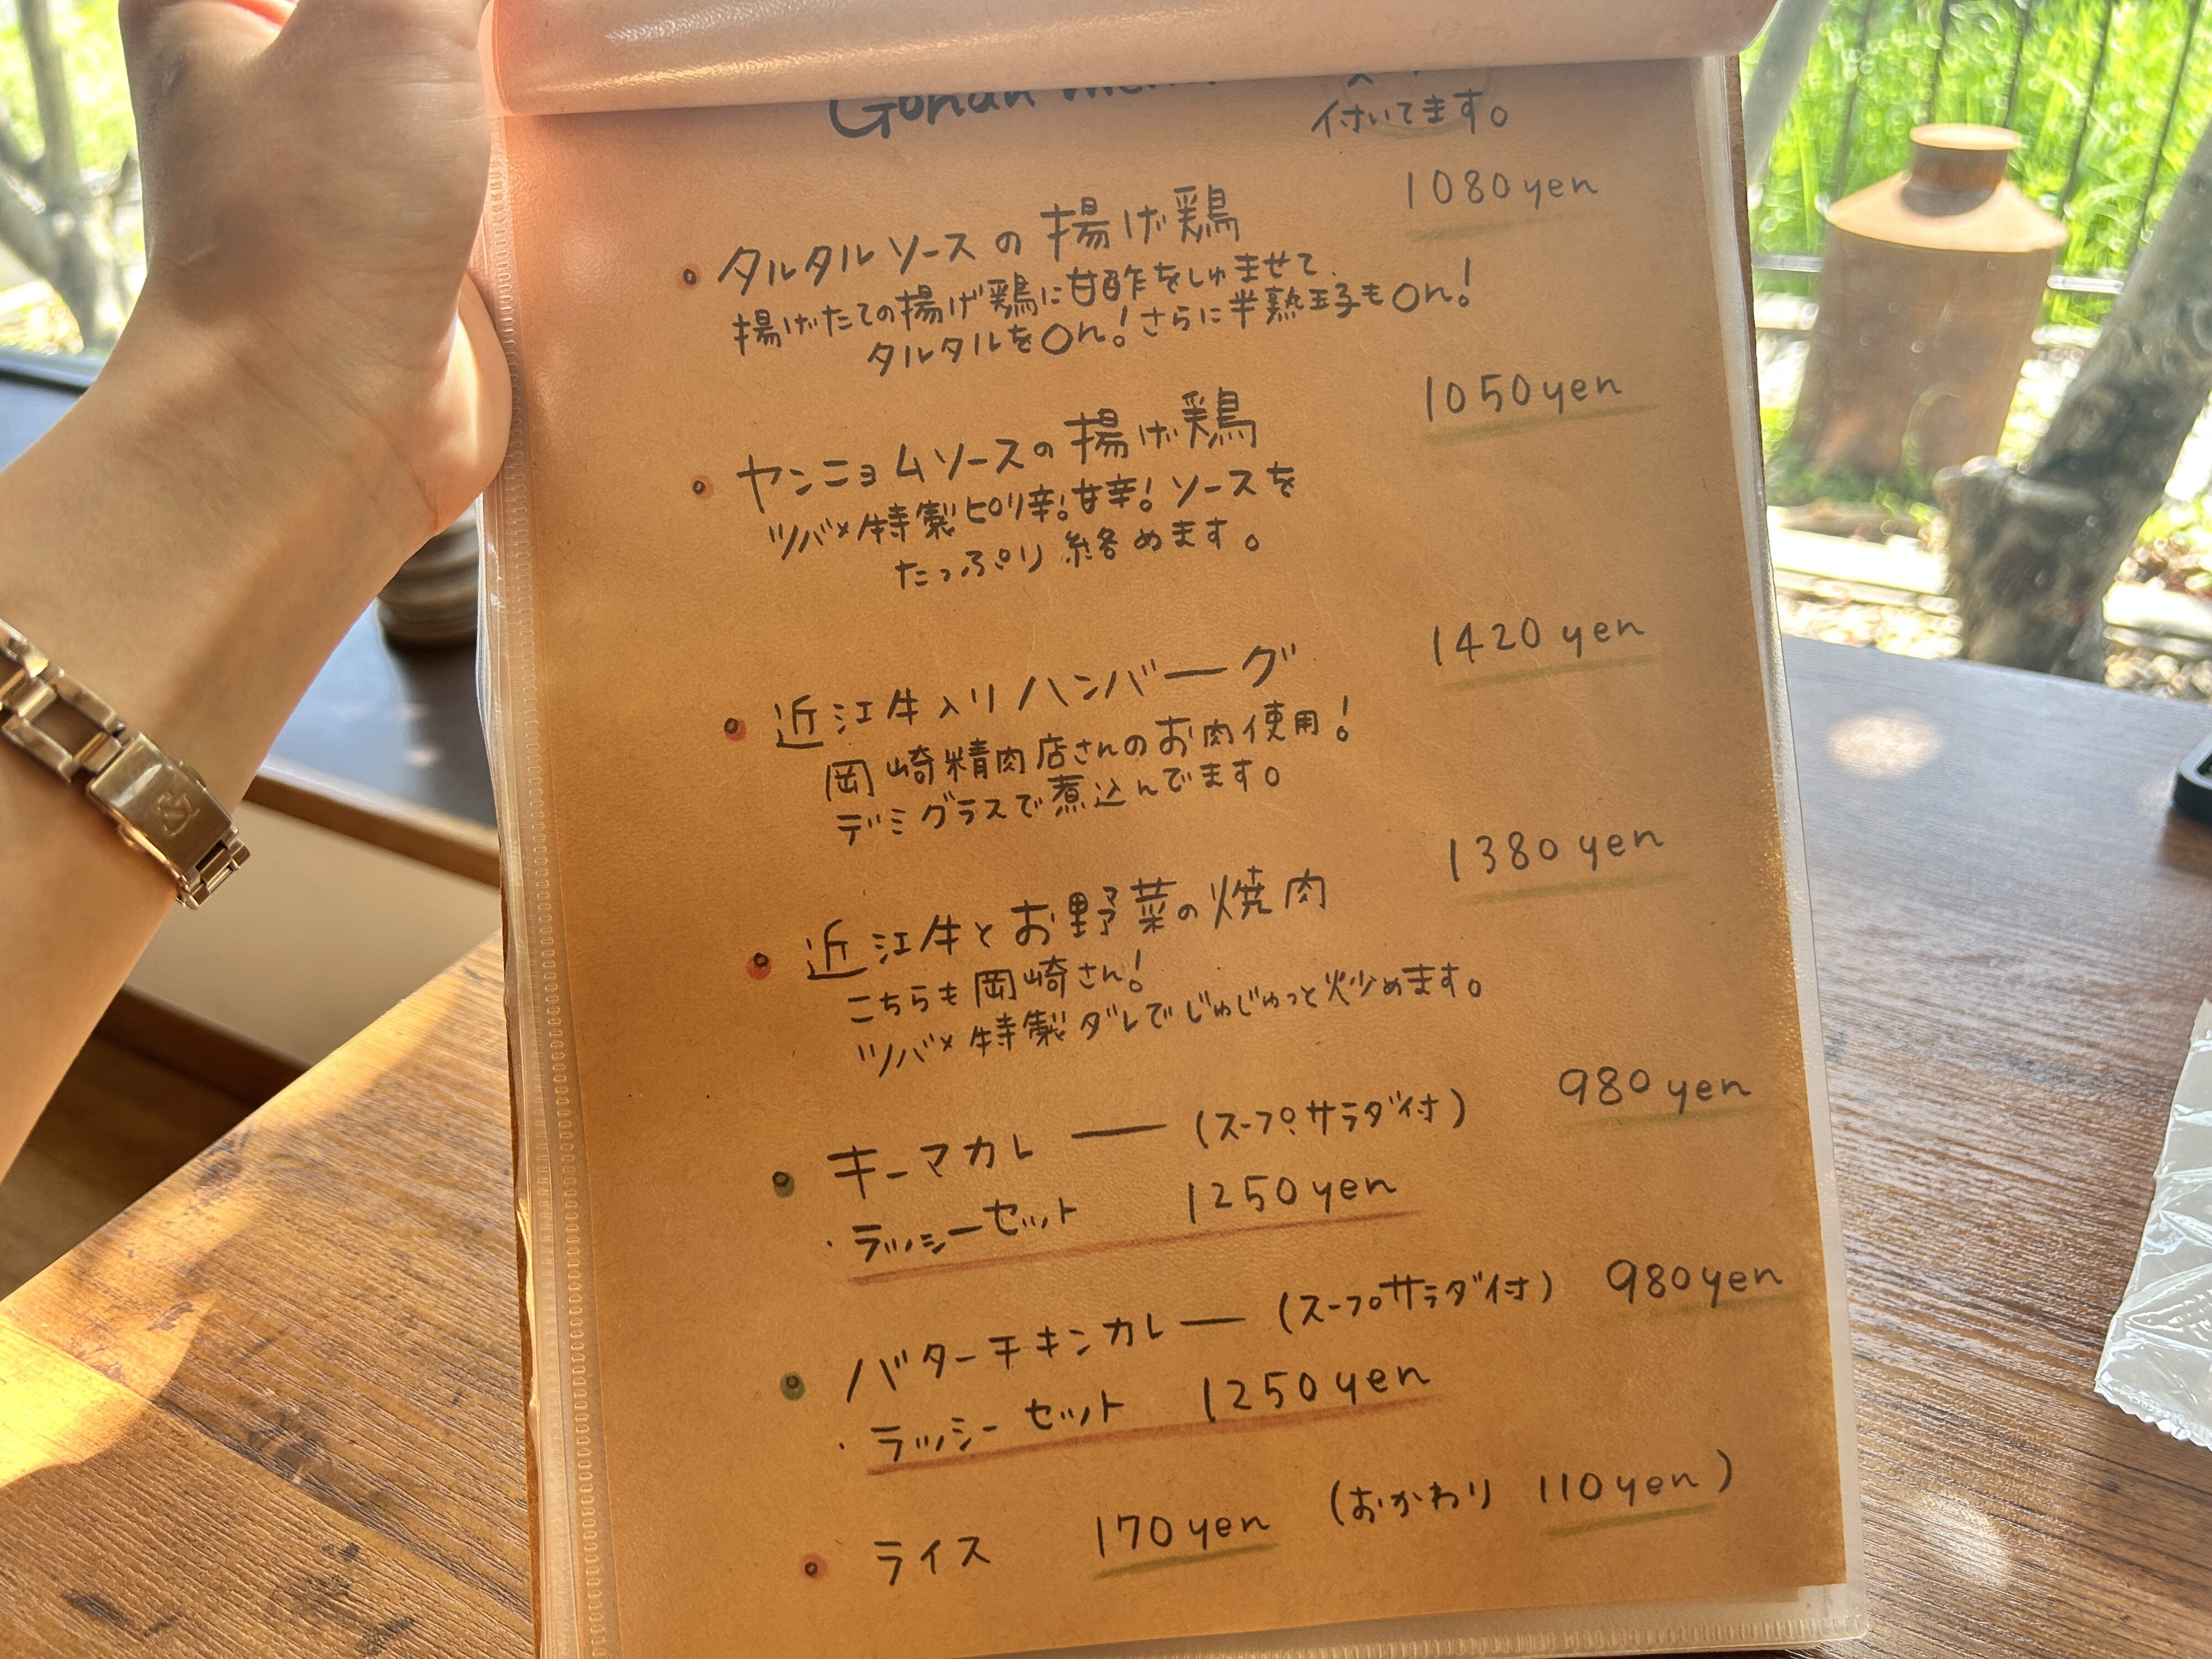 Gohan
付いてます。
1080yen
タルタルソースの揚げ鶏
揚げたての揚げ鶏に甘酢をしゅませて、
タルタルをOn!さらに半熟玉子もOn!
1050yen
ヤンニョムソースの揚げ鶏
ツバメ特製ピリ辛!甘辛!ソースを
たっぷり絡めます。
1420yen
近江牛入りハンバーグ
岡崎精肉店さんのお肉使用!
デミグラスで煮込んでます。
1380yen
近江牛とお野菜の焼肉
こちらも岡崎さん!
ツバメ特製ダレでじゅじゅっと炒めます。
キーマカレー(スープ、サラダ付) 980yen
・ラッシーセット 1250yen
バターチキンカレー(スープサラダ付) 980yen
・ラッシーセット 1250yen
ライス 170yen (おかわり 110yen)